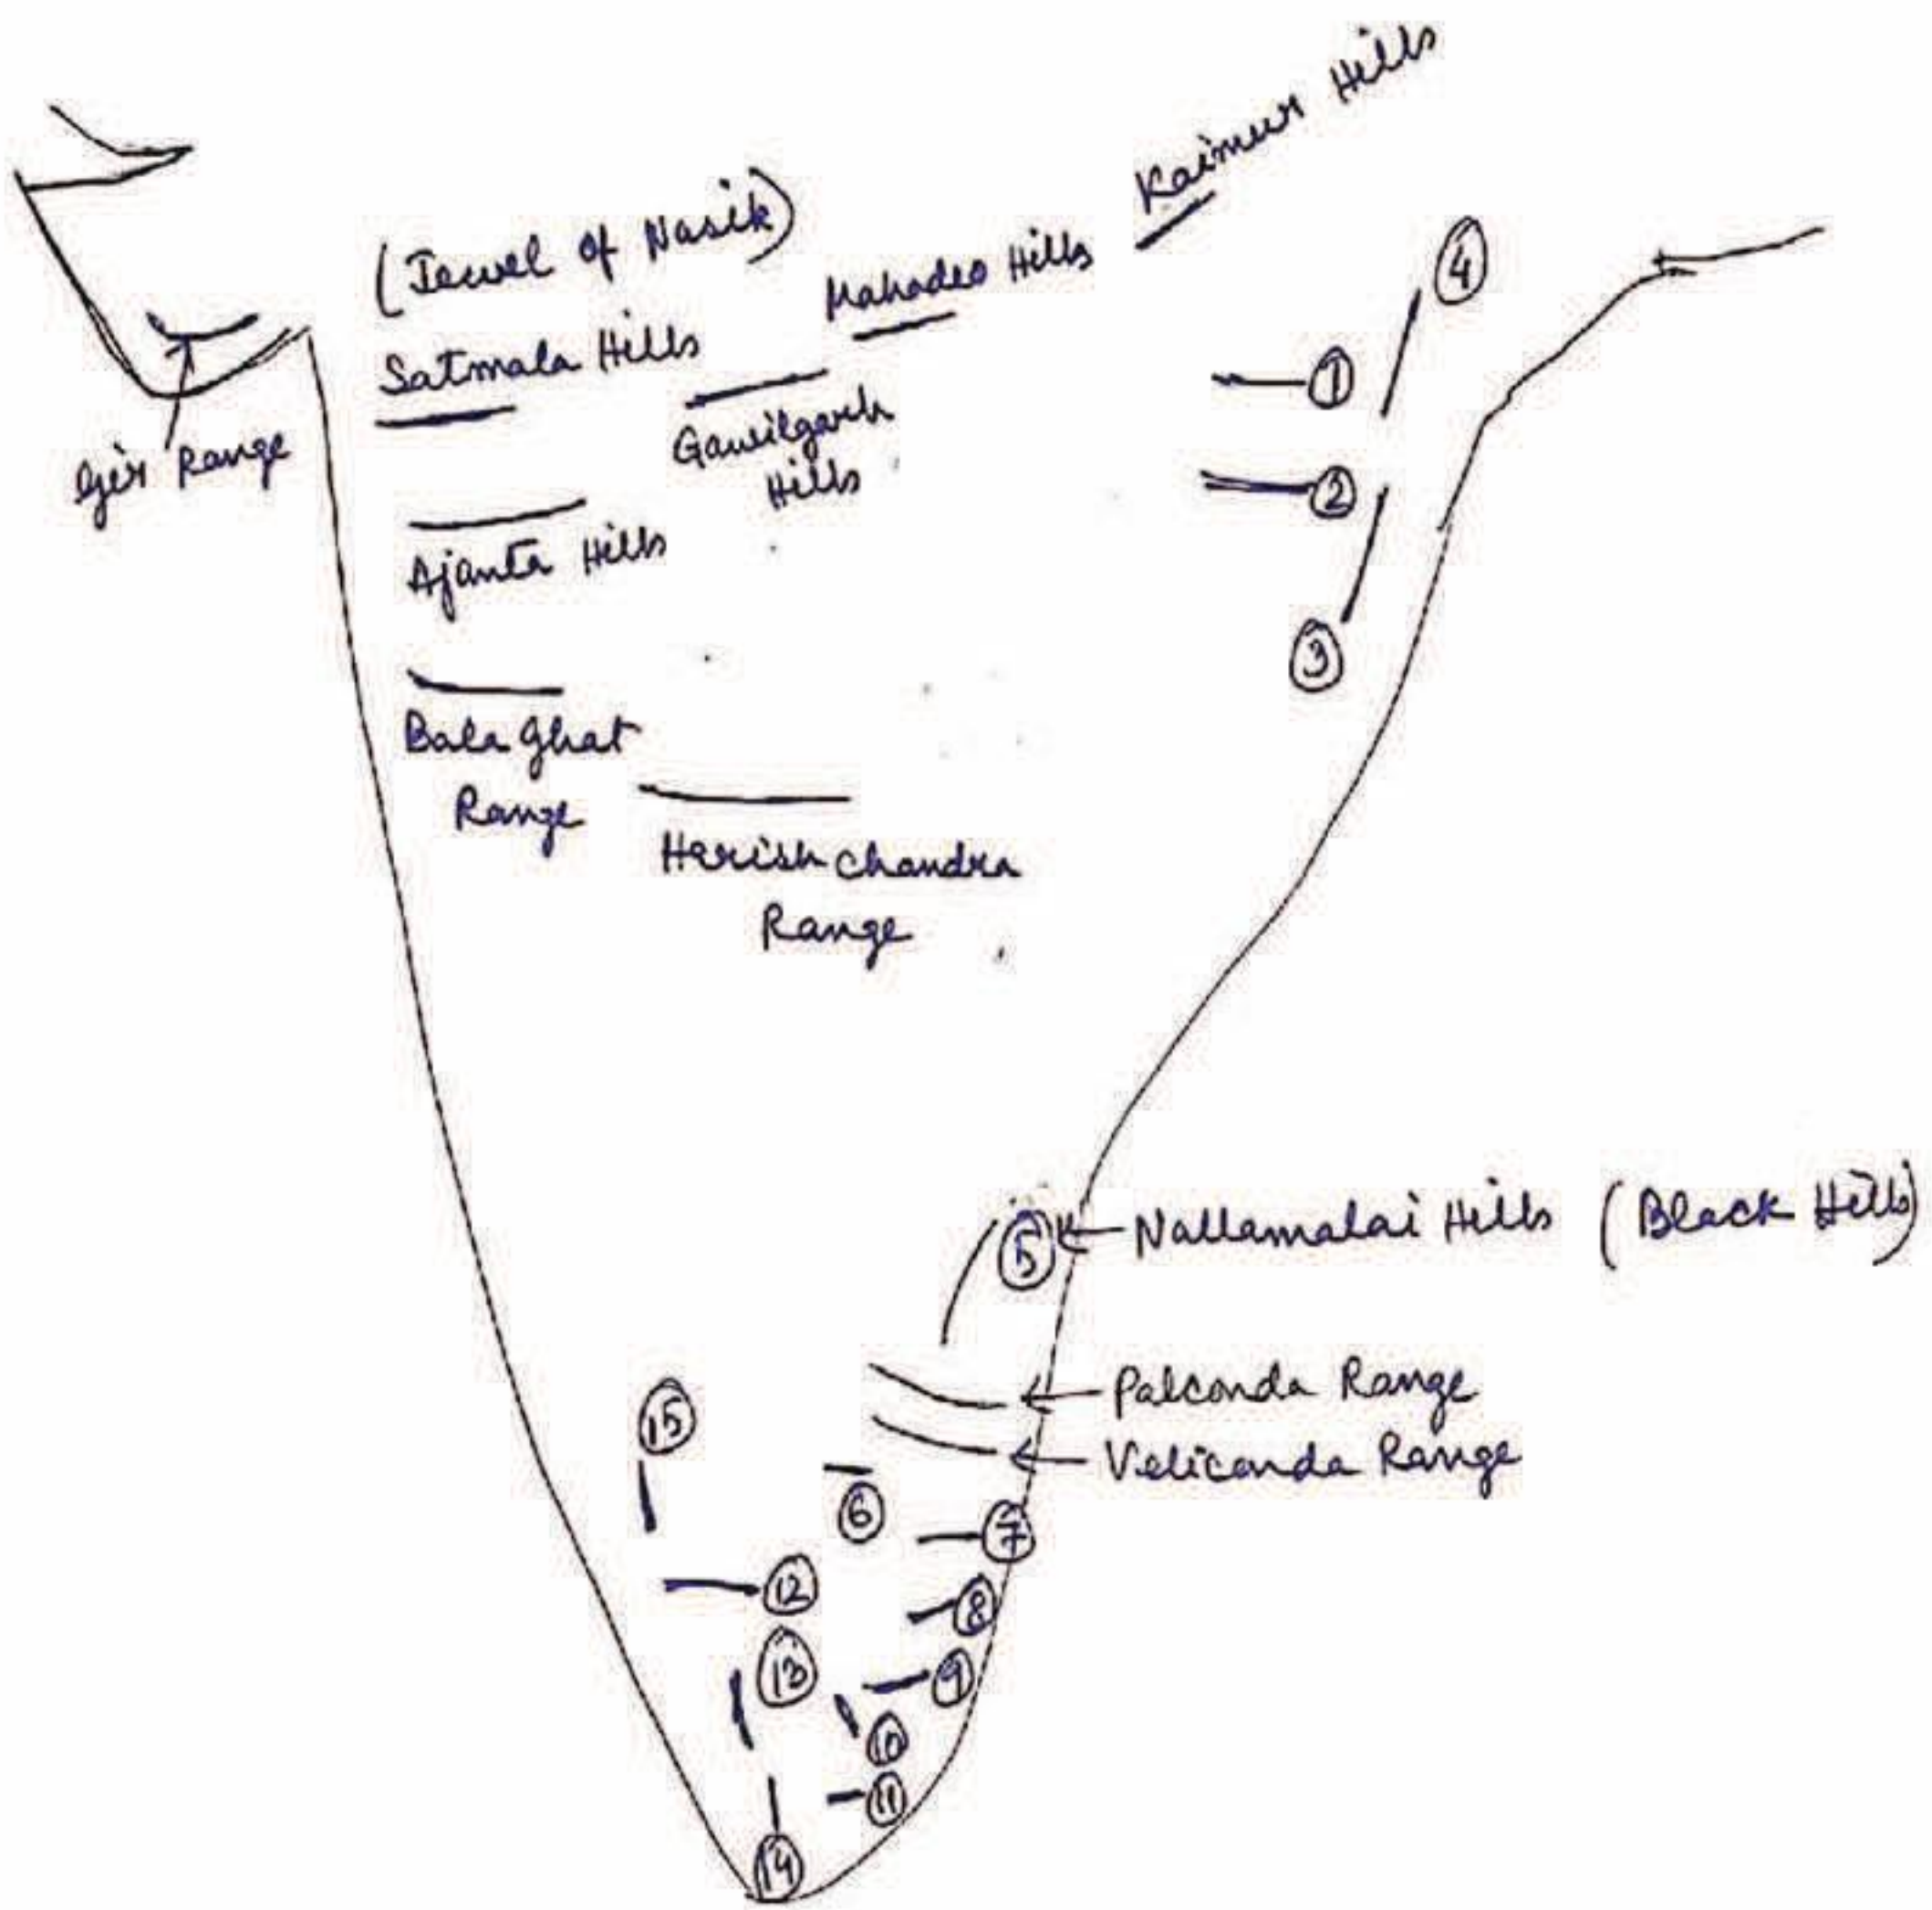 Kaimur Hills
(Jewel of Nasik)
Mahadeo Hills
Satmala Hills
Gawilgarh
Hills
Gir Range
Ajanta Hills
4
1
2
3
Bala Ghat
Range
Harish chandra
Range
5
Nallamalai Hills (Black Hills)
Palconda Range
Veliconda Range
15
6
7
12
8
13
9
10
11
14